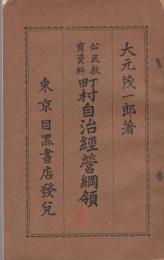 大元茂一郎著
公民教育資料
町村自治經營綱領
東京目黒書店發兌